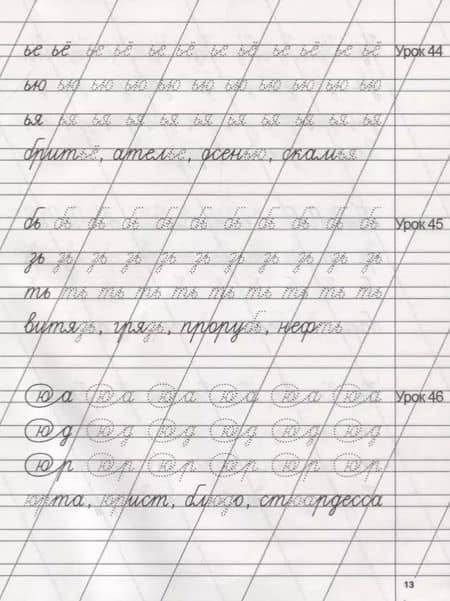 ье ьё ье ьё ье ьё ье ьё ье ьё ье ьё Урок 44
ью ью ью ью ью ью ью ью ью ью ью
ья ья ья ья ья ья ья ья ья ья ья
бритьё, ателье, осенью, скамья
бь бь бь бь бь бь бь бь бь бь бь Урок 45
зь зь зь зь зь зь зь зь зь зь зь
ть ть ть ть ть ть ть ть ть ть
витязь, грязь, прорубь, нефть
юа юа юа юа юа юа Урок 46
юд юд юд юд юд юд
юр юр юр юр юр юр
юрта, юрист, блюдо, стюардесса
13